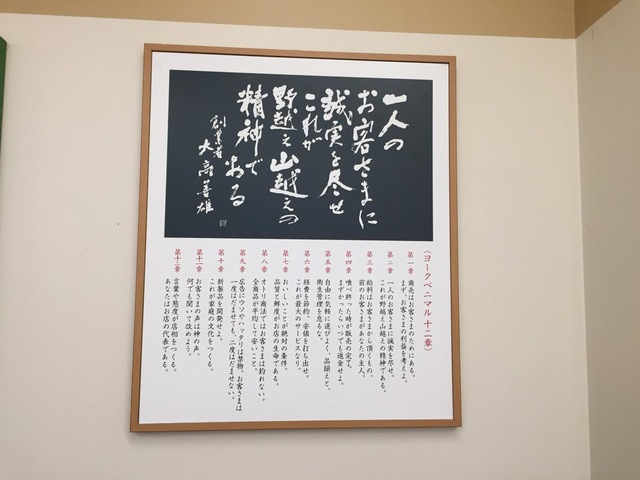 一人の
お客さまに
誠実を尽せ
これが
野越え山越えの
精神で
ある
創業者
大高善雄
〈ヨークベニマル 十二章〉
第一章 商売はお客さまのためにある。
まず、お客さまの利益を考えよ。
第二章 一人のお客さまに誠実を尽せ。
これが野越え山越えの精神である。
第三章 給料はお客さまから頂くもの、
前のお客さまがあなたの主人。
第四章 喰べ終った時が販売の完了。
まずかったら、いつでも返金せよ。
第五章 自由に気軽に選びよく、品揃えと、
衛生管理を怠るな。
第六章 経費を節約、安値を打ち出せ。
これが最大のサービスなり。
第七章 おいしいことが絶対の条件。
品質と鮮度がお店の生命である。
第八章 オトリ商法ではお客さまは釣れない。
全商品が平均して安いこと。
第九章 広告にウソやハッタリは禁物。お客さまは
一度はだませても、二度はだませない。
第十章 新製品を開発せよ。
これが家庭の文化をつくる。
第十一章 お客さまの声は神の声、
何でも聞いて改めよう。
第十二章 言葉や態度が店相をつくる。
あなたはお店の代表である。